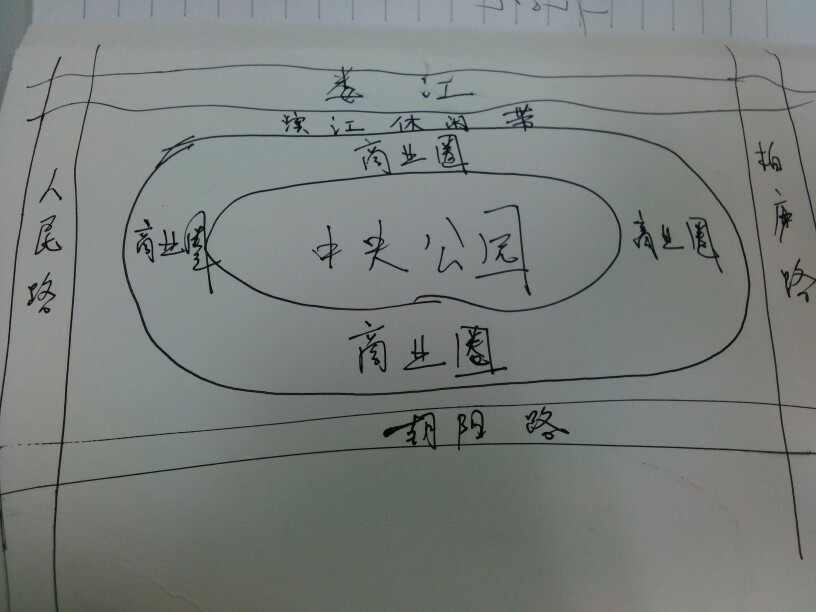 娄江
滨江休闲带
商业圈
人民路
商业圈
中央公园
商业圈
柏庐路
商业圈
朝阳路